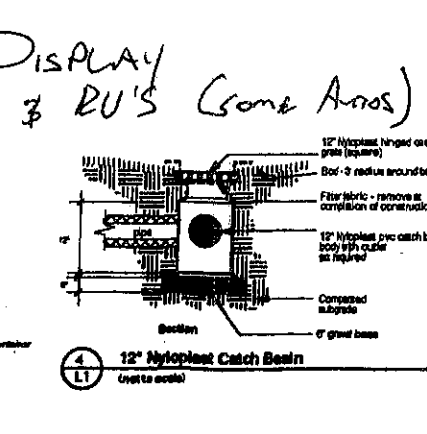 DISPLAY
& RU'S (some Autos)
12" Nyloplast hinged cas
grate (square)
Sod - 3' radius around b
Filter fabric - remove at
completion of constructio
12" Nyloplast pvc catch b
body with outlet
as required
pipe
12"
6"
Compacted
subgrade
Section
6" gravel base
ontainer
4
L1
12" Nyloplast Catch Basin
(not to scale)